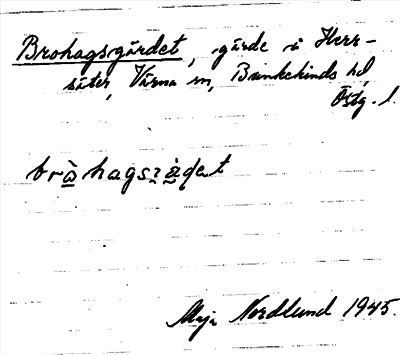 Brohagsgärdet, gärde i Herr-
säter, Värna sn, Bankekinds hd,
Östg. l.
Maja Nordlund 1945.